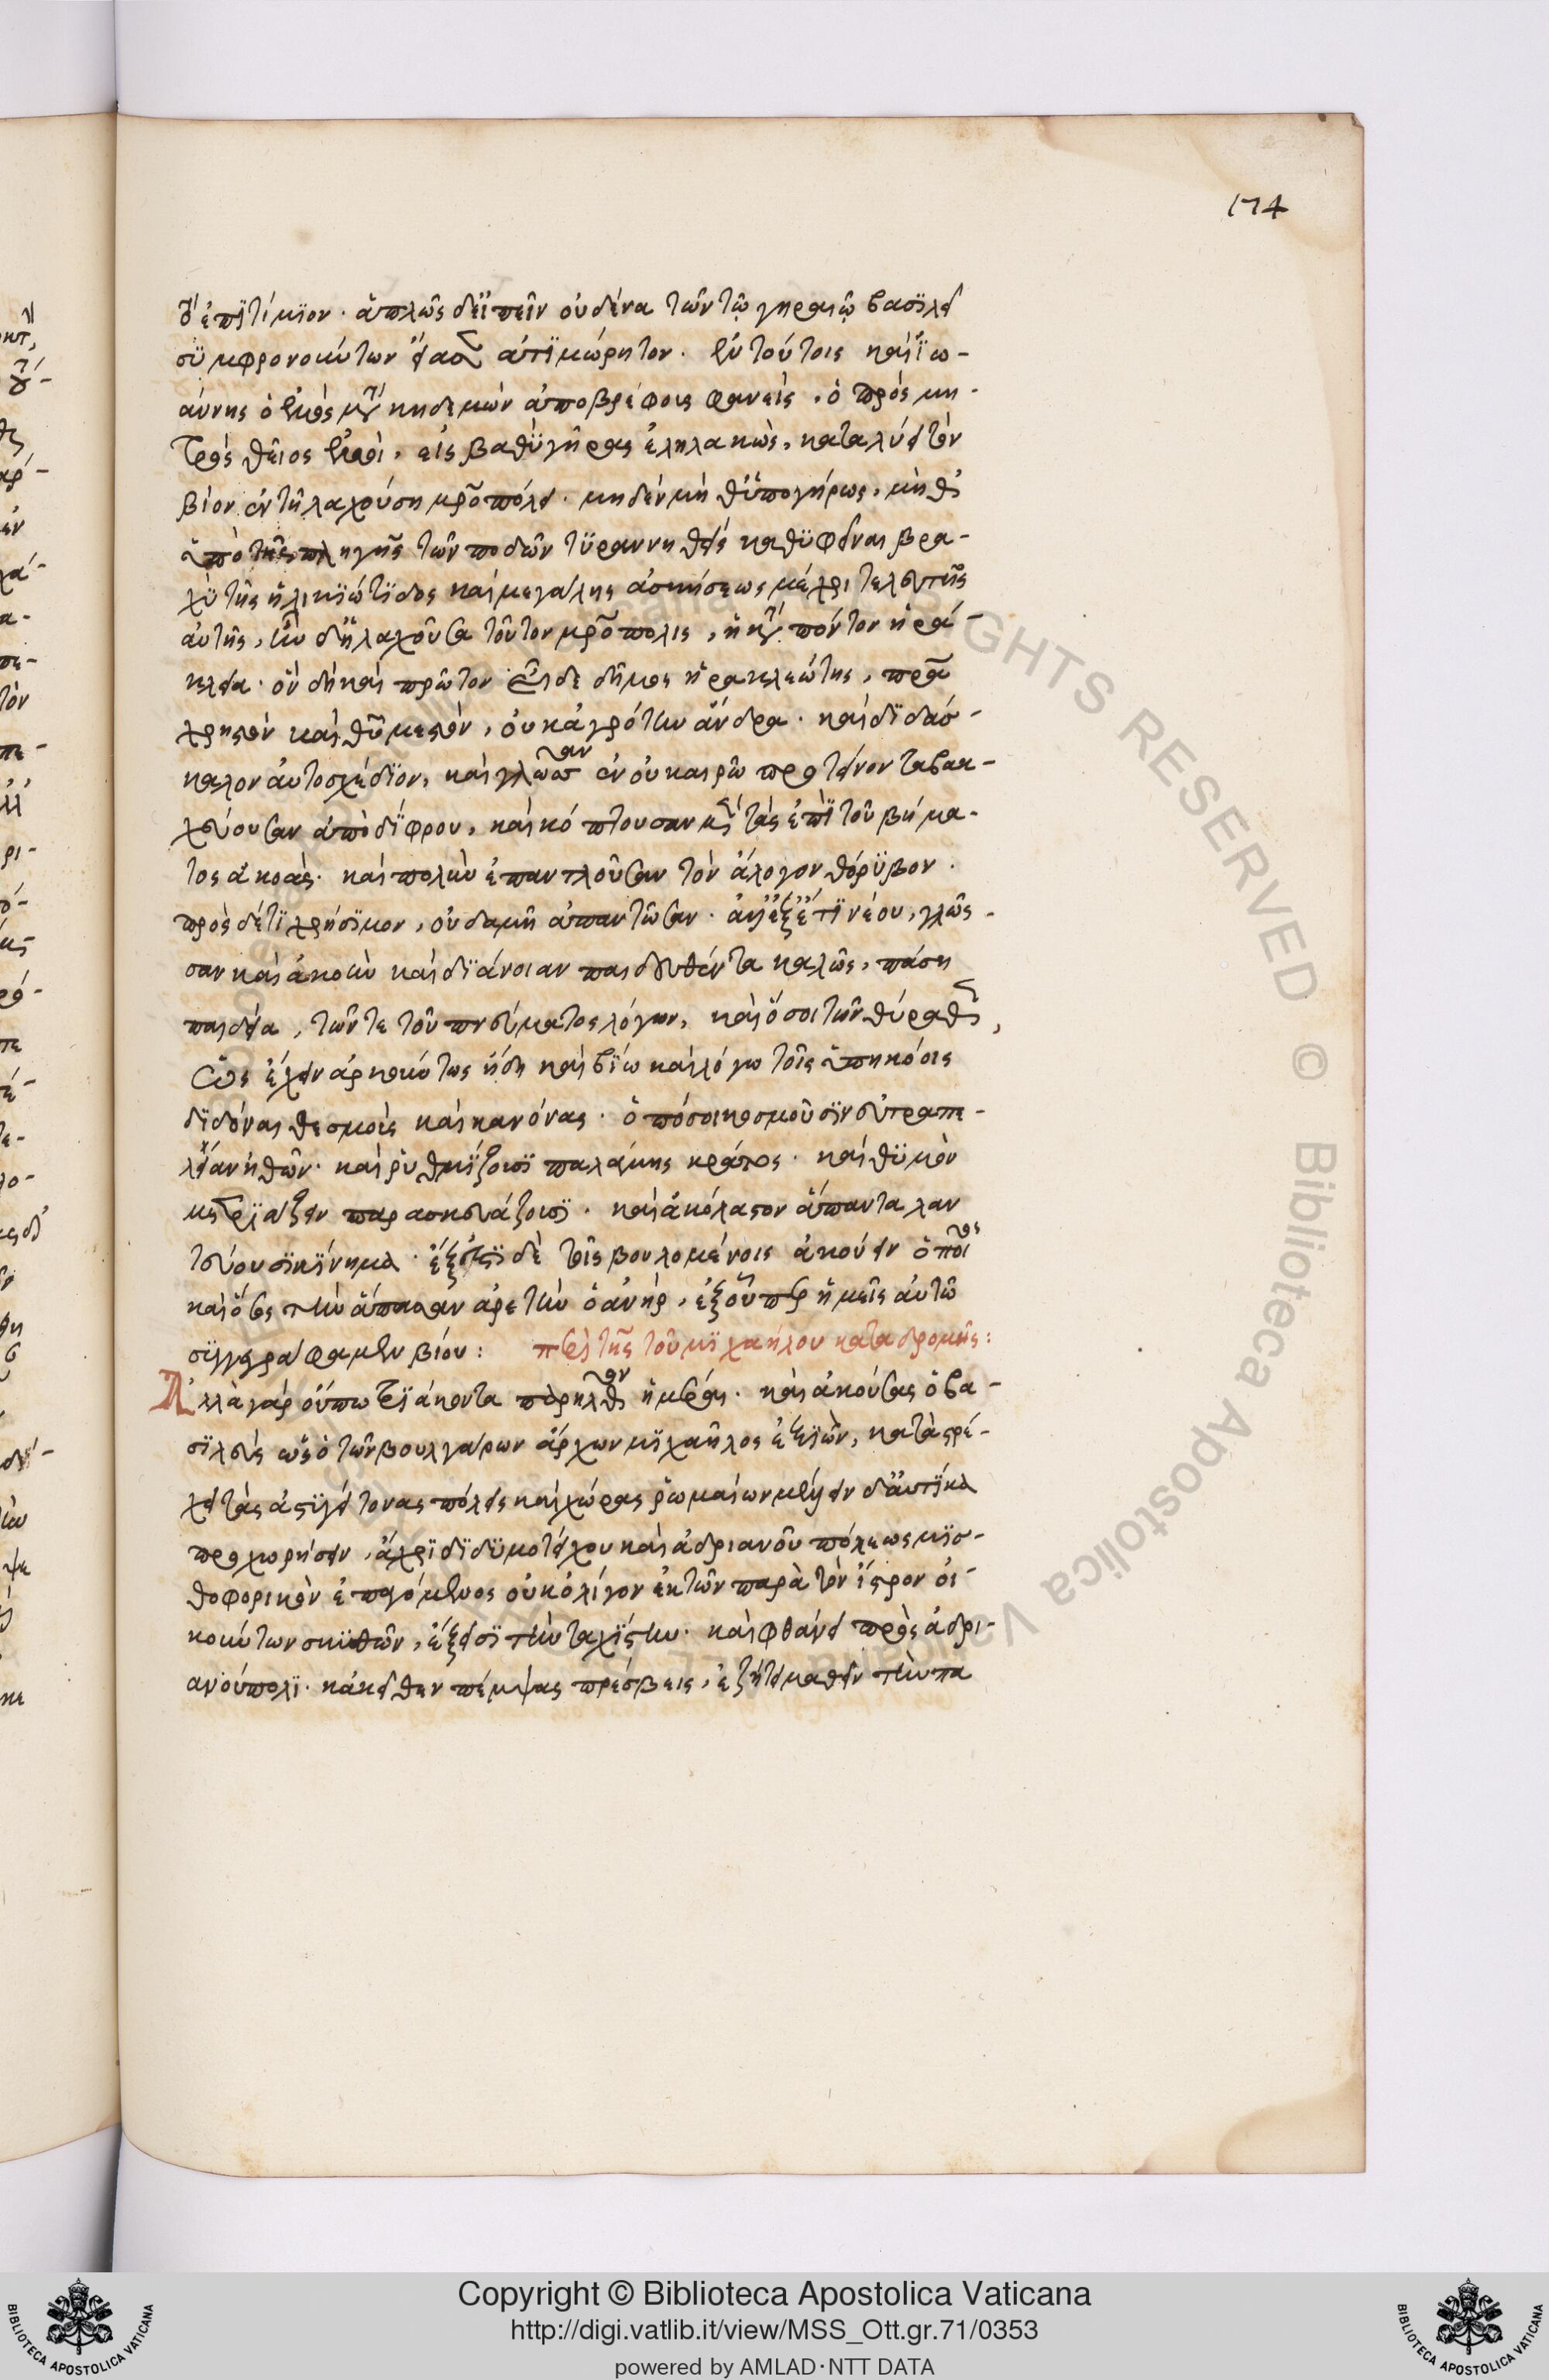 174
δ' ἐπϊτίμϊον· ἁπλῶς δ' εἰπεῖν οὐδένα τῶν τῷ γηραιῷ βασϊλεῖ
συμφρονούντων εἴασεν ἀτϊμώρητον. ἐν τούτοις καὶ Ἰω-
άννης ὁ ἐμὸς κηδεμὼν ἀπὸ βρέφους φανεὶς, ὁ πρὸς μη-
τρὸς θεῖος ἐμοὶ, εἰς βαθὺ γῆρας ἐληλακὼς, καταλύει τὸν
βίον ἐν τῇ λαχούσῃ μητροπόλει. μηδὲν μήθ' ὑπὸ γήρως, μήθ'
ὑπὸ τῆς πληγῆς τῶν ποδῶν τυραννηθεὶς καθυφεῖναι βρα-
χὺ τῆς ἡλικϊώτϊδος καὶ μεγάλης ἀσκήσεως μέχρι τελευτῆς
αὐτῆς, ἦν δ' ἡ λαχοῦσα τοῦτον μητρόπολις, ἡ κατὰ πόντον ἡρά-
κλεια. ὃν δὴ καὶ πρῶτον εἶδε δῆμος ἡρακλεώτης, πρᾶον
χρηστὸν καὶ θυμηστὸν, οὐκ ἀγρότην ἄνδρα. καὶ δϊδάσ-
καλον αὐτοσχέδϊον, καὶ γλῶσσαν ἐν οὐ καιρῷ προτείνοντα βακ-
χεύουσαν ἀπὸ δίφρου, καὶ κόπτουσαν μὲν τὰς ἐπὶ τοῦ βήμα-
τος ἀκοὰς. καὶ πολὺν ἐπαντλοῦσαν τὸν ἄλογον θόρυβον.
πρὸς δέ τι χρήσϊμον, οὐδαμῆ ἀπαντῶσαν. ἀλλ' ἐξ ἔτι νέου, γλῶσ-
σαν καὶ ἀκοὴν καὶ δϊάνοιαν παιδευθέντα καλῶς, πάσῃ
παιδείᾳ, τῶν τε τοῦ πνεύματος λόγων, καὶ ὅσοι τῶν θύραθεν,
ὡς ἔχειν ἀρκούντως ἤδη καὶ βίῳ καὶ λόγῳ τοῖς ὑπηκόοις
δϊδόναι θεσμοὺς καὶ κανόνας. ὁπόσοι κοσμοῦσϊν εὐτραπε-
λίαν ἠθῶν. καὶ ῥυθμίζουσϊ παλάμης κράτος. καὶ θυμὸν
μετρϊάζειν παρασκευάζουσϊ. καὶ ἀκόλαστον ἅπαντα χαλιν
τεύουσϊ κίνημα. ἔξεστϊ δὲ τοῖς βουλομένοις ἀκούειν ὁποῖος
καὶ ὅσος τὴν ἅπασαν ἀρετὴν ὁ ἀνὴρ, ἐξ οὗπερ ἡμεῖς αὐτῷ
συγγράφαμεν βίου: περὶ τῆς τοῦ μϊχαήλου καταδρομῆς:
Ἀλλὰ γὰρ οὔπω τρϊάκοντα παρῆλθον ἡμέραι. καὶ ἀκούσας ὁ βα-
σϊλεὺς ὡς ὁ τῶν βουλγάρων ἄρχων μϊχαῆλος ἐξϊὼν, κατατρέ-
χει τὰς ἀστυγείτονας πόλεις καὶ χώρας ῥωμαίων μέλλειν δ' αὐτίκα
προχωρήσειν, ἄχρι δϊδυμοτείχου καὶ ἀδριανοῦ πόλεως μϊσ-
θοφορικὸν ἐπαγόμενος οὐκ ὀλίγον ἐκ τῶν παρὰ τὸν ἴστρον οἰ-
κούντων σκυθῶν, ἔξεισϊ τὴν ταχίστην. καὶ φθάνει πρὸς ἀδρι-
ανούπολϊ. κἀκεῖθεν πέμψας πρέσβεις, ἐζήτει μαθεῖν τὴν πα
Copyright © Biblioteca Apostolica Vaticana
http://digi.vatlib.it/view/MSS_Ott.gr.71/0353
powered by AMLAD·NTT DATA
BIBLIOTECA APOSTOLICA VATICANA
BIBLIOTECA APOSTOLICA VATICANA